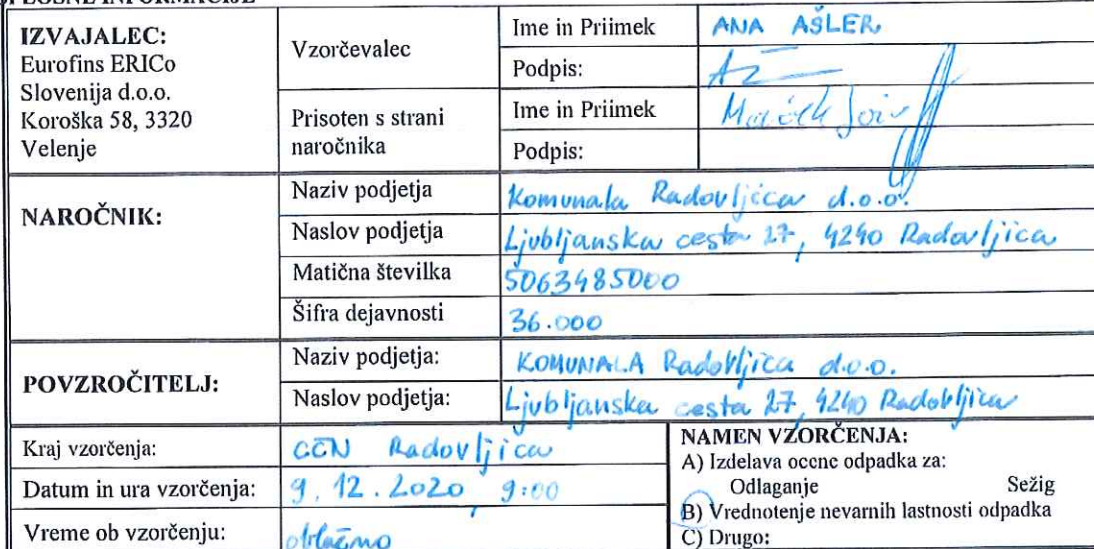 SPLOŠNE INFORMACIJE
IZVAJALEC:
Eurofins ERICo
Slovenija d.o.o.
Koroška 58, 3320
Velenje
Vzorčevalec
Ime in Priimek
ANA AŠLER
Podpis:
Prisoten s strani
naročnika
Ime in Priimek
Podpis:
NAROČNIK:
Naziv podjetja
Komunala Radovljica d.o.o.
Naslov podjetja
Ljubljanska cesta 27, 4240 Radovljica
Matična številka
5063485000
Šifra dejavnosti
36.000
POVZROČITELJ:
Naziv podjetja:
KOMUNALA Radovljica d.o.o.
Naslov podjetja:
Ljubljanska cesta 27, 4240 Radovljica
Kraj vzorčenja:
CČN Radovljica
Datum in ura vzorčenja:
9.12.2020 9:00
Vreme ob vzorčenju:
oblačno
NAMEN VZORČENJA:
A) Izdelava ocene odpadka za:
Odlaganje Sežig
B) Vrednotenje nevarnih lastnosti odpadka
C) Drugo: